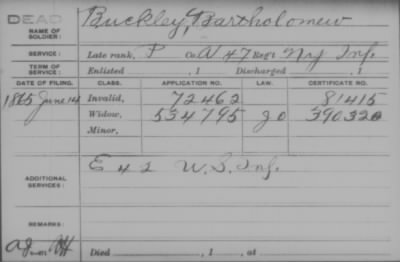 DEAD
NAME OF SOLDIER: Buckley, Bartholomew
SERVICE: Late rank, P Co. A 47 Reg't N.Y. Inf.
TERM OF SERVICE: Enlisted , 1 Discharged , 1
DATE OF FILING. CLASS. APPLICATION NO. LAW. CERTIFICATE NO.
1865 June 14 Invalid, 72462 81415
Widow, 534795 390320
Minor,
ADDITIONAL SERVICES: E 42 U.S. Inf.
REMARKS:
Died , 1 , at